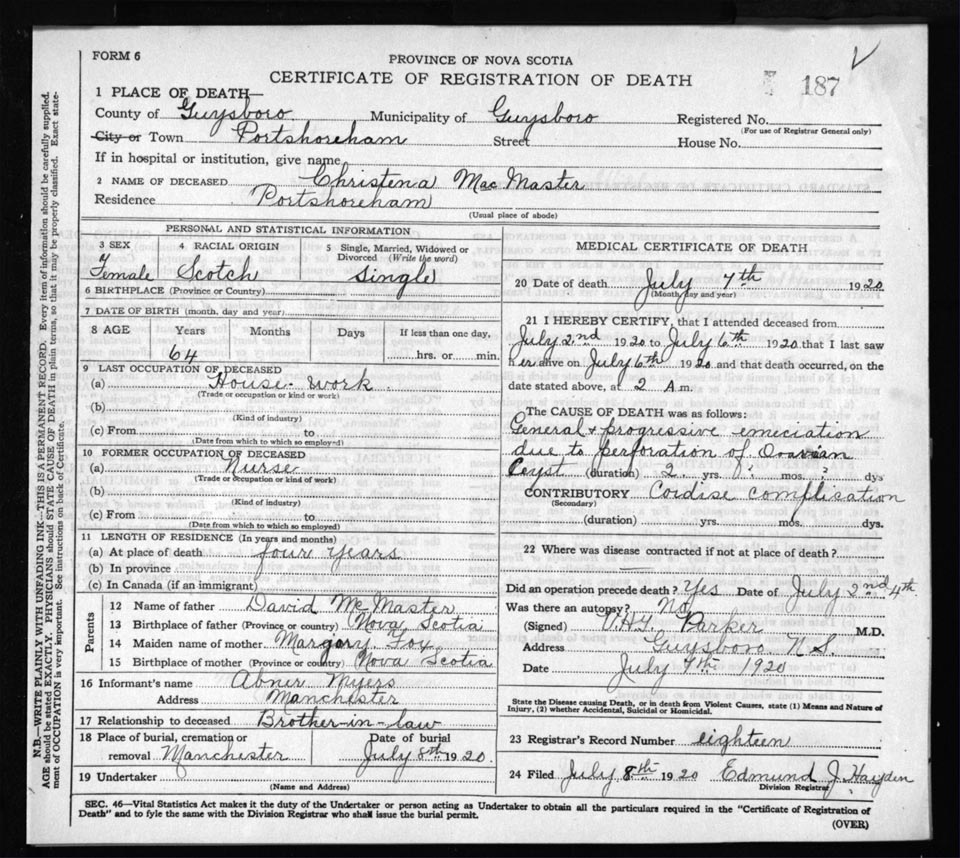 FORM 6
PROVINCE OF NOVA SCOTIA
CERTIFICATE OF REGISTRATION OF DEATH
187
1 PLACE OF DEATH—
County of Guysboro Municipality of Guysboro Registered No.
(For use of Registrar General only)
City or Town Portshoreham Street House No.
If in hospital or institution, give name
2 NAME OF DECEASED Christena Mac Master
Residence Portshoreham
(Usual place of abode)
PERSONAL AND STATISTICAL INFORMATION
3 SEX 4 RACIAL ORIGIN 5 Single, Married, Widowed or Divorced (Write the word)
Female Scotch Single
6 BIRTHPLACE (Province or Country)
7 DATE OF BIRTH (month, day and year)
8 AGE Years Months Days If less than one day,
64 hrs. or min.
9 LAST OCCUPATION OF DECEASED
(a) House-work
(Trade or occupation or kind or work)
(b)
(Kind of industry)
(c) From to
(Date from which to which so employed)
10 FORMER OCCUPATION OF DECEASED
(a) Nurse
(Trade or occupation or kind of work)
(b)
(Kind of industry)
(c) From to
(Date from which to which so employed)
11 LENGTH OF RESIDENCE (In years and months)
(a) At place of death four years
(b) In province
(c) In Canada (if an immigrant)
Parents
12 Name of father David McMaster
13 Birthplace of father (Province or country) Nova Scotia
14 Maiden name of mother Margory Foy
15 Birthplace of mother (Province or country) Nova Scotia
16 Informant's name Abner Myers
Address Manchester
17 Relationship to deceased Brother-in-law
18 Place of burial, cremation or removal Manchester
Date of burial July 8th 1920
19 Undertaker
(Name and Address)
MEDICAL CERTIFICATE OF DEATH
20 Date of death July 7th 1920
(Month, day and year)
21 I HEREBY CERTIFY, that I attended deceased from
July 2nd 1920 to July 6th 1920 that I last saw
her alive on July 6th 1920 and that death occurred, on the
date stated above, at 2 A.m.
The CAUSE OF DEATH was as follows:
General + progressive emeciation
due to perforation of Ovarian
Ceyst (duration) 2 yrs. mos. dys
CONTRIBUTORY Cordise complisation
(Secondary)
(duration) yrs. mos. dys.
22 Where was disease contracted if not at place of death?
Did an operation precede death? Yes Date of July 2nd 4th
Was there an autopsy? No
(Signed) Parker M.D.
Address Guysboro N.S.
Date July 7th 1920
State the Disease causing Death, or in death from Violent Causes, state (1) Means and Nature of
Injury, (2) whether Accidental, Suicidal or Homicidal.
23 Registrar's Record Number eighteen
24 Filed July 8th 1920 Edmund J. Hayden
Division Registrar
SEC. 46—Vital Statistics Act makes it the duty of the Undertaker or person acting as Undertaker to obtain all the particulars required in the "Certificate of Registration of
Death" and to fyle the same with the Division Registrar who shall issue the burial permit.
(OVER)
N.B.—WRITE PLAINLY WITH UNFADING INK—THIS IS A PERMANENT RECORD. Every item of information should be carefully supplied.
AGE should be stated EXACTLY. PHYSICIANS should STATE CAUSE OF DEATH in plain terms, so that it may be properly classified. Exact state-
ment of OCCUPATION is very important. See instructions on back of Certificate.